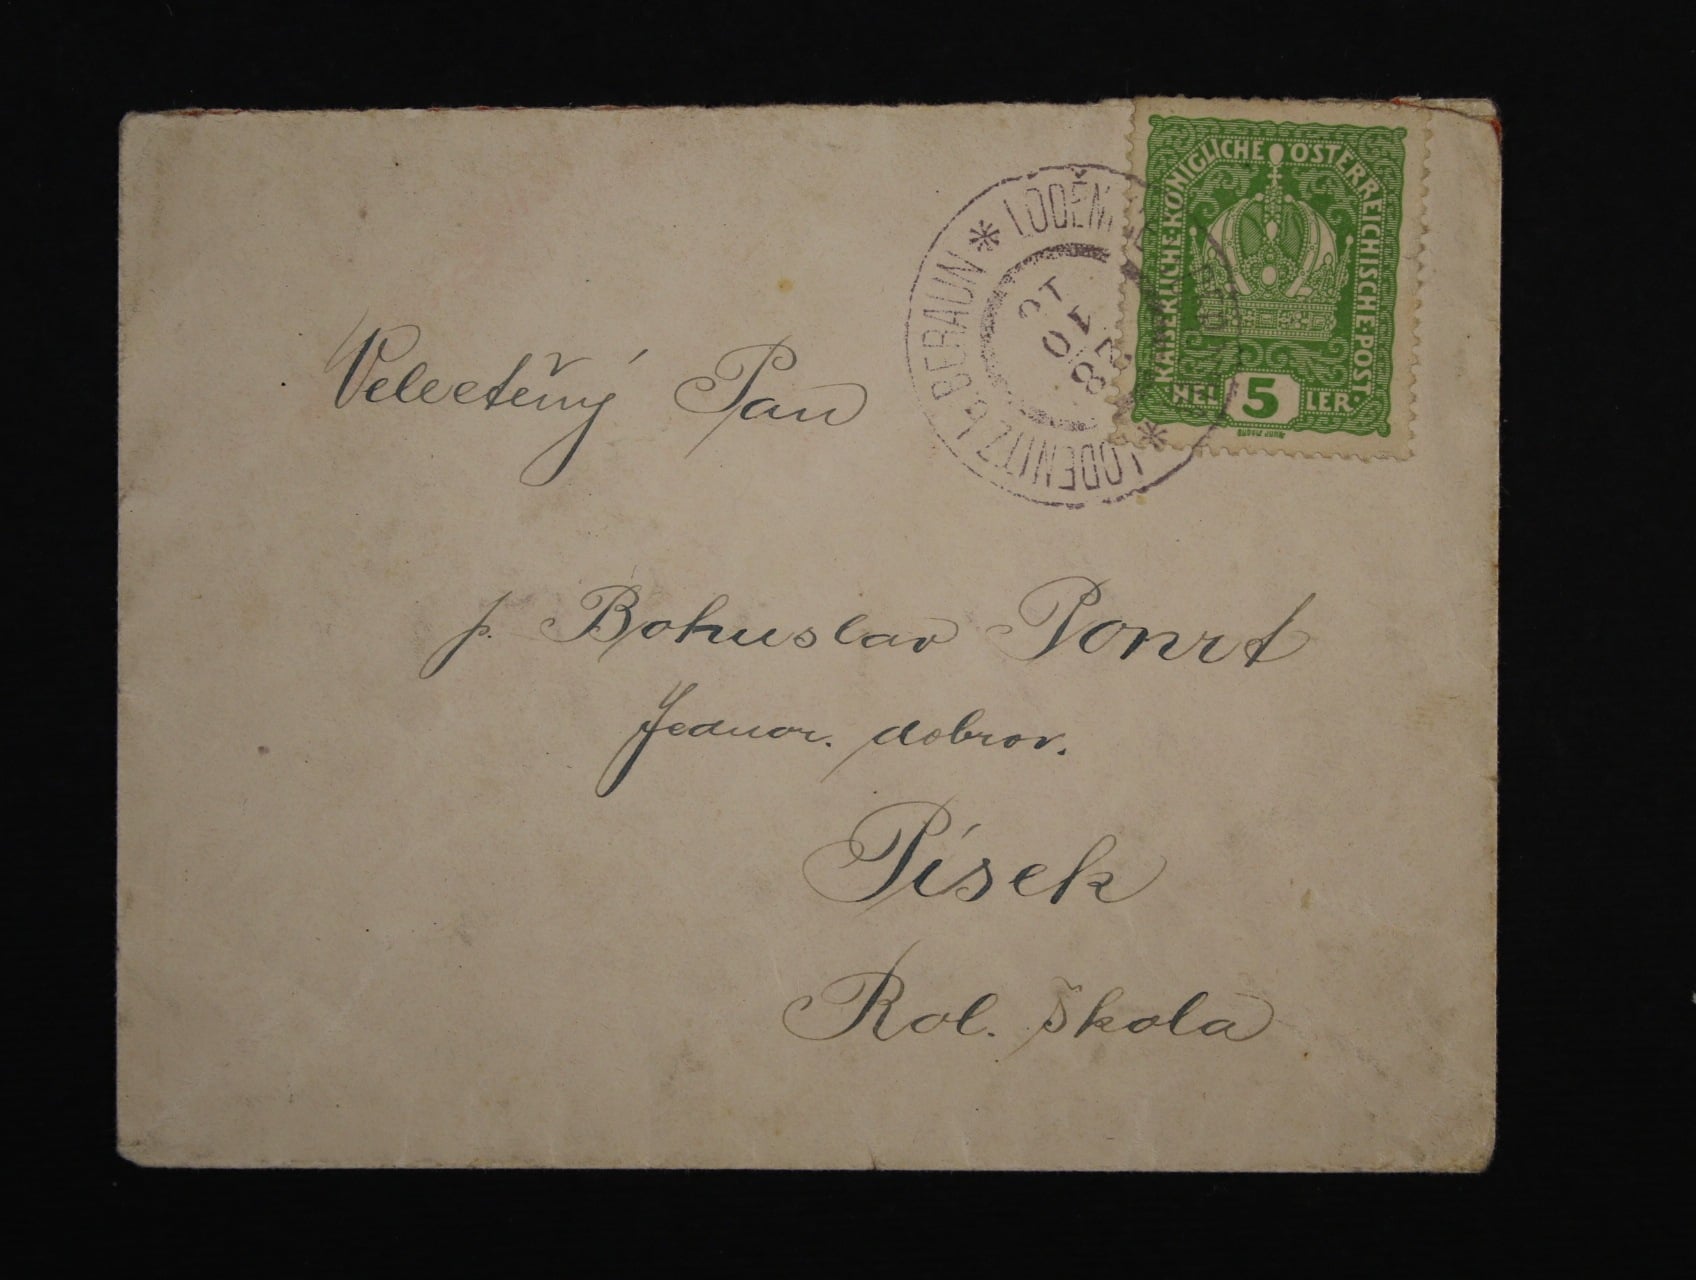 KAISERLICHE·KÖNIGLICHE ÖSTERREICHISCHE·POST·
HEL 5 LER
LODĚN
LODENITZ b. BERAUN
28
10
18
Velectěný Pan
p. Bohuslav Ponrt
Jednor. dobrov.
Písek
Rol. škola